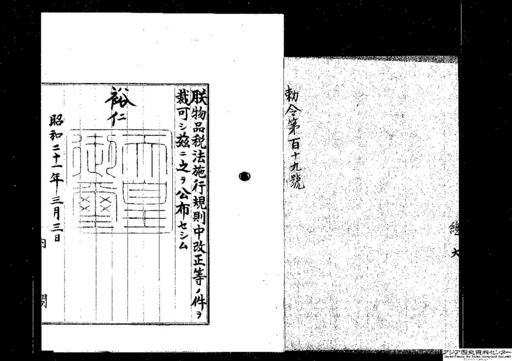 勅令第百十九號
朕物品税法施行規則中改正等ノ件ヲ
裁可シ茲ニ之ヲ公布セシム
裕仁
天皇
御璽
昭和二十一年三月三日
内閣
アジア歴史資料センター